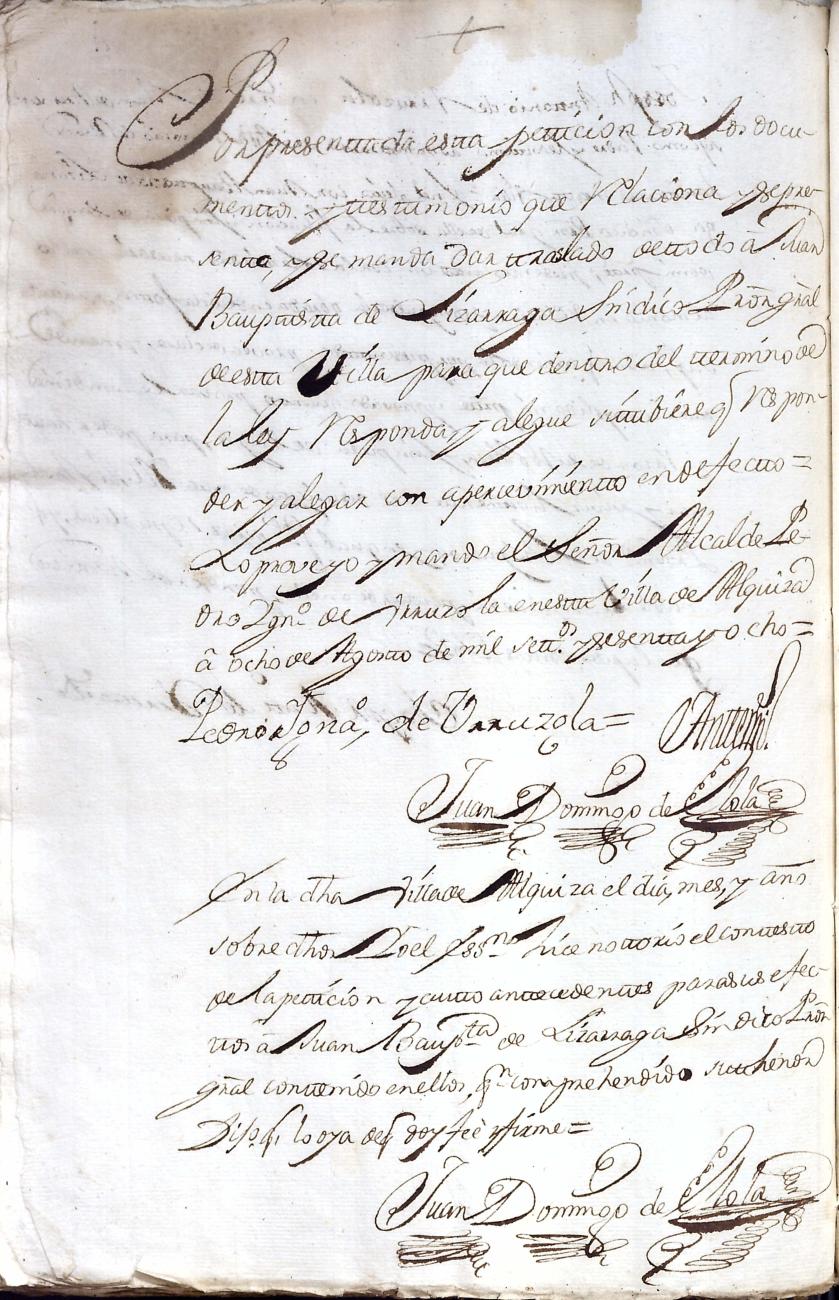 Por presentada esta peticion con los docu-
mentos y testimonio que Relaciona y se pre-
senta, y se manda dar traslado de todo â Juan
Bauptista de Lizarraga Sindico Prõr gñal
de esta Villa para que dentro del termino de
la ley Responda y alegue si tubiere q̃ Respon-
der y alegar con apercevimiento en defecto =
Lo proveyo y mando el Señor Alcalde Pe-
dro Ignº de Urruzola en esta Villa de Alquiza
â ocho de Agosto de mil settos y sesenta y ocho =
Pedro Ignaº de Urruzola = Antemi
Juan Domingo de Elola
En la dha Villa de Alquiza el dia, mes, y año
sobre dhos Yo el Essno hice notorio el contesto
de la peticion y auto antecedentes para sus efec-
tos â Juan Baupta de Lizarraga Sindico Prõr
gñal contenido en ellos, qn comprehendido su thenor
Dijo q̃ lo oya de q̃ doy fee y firme =
Juan Domingo de Elola